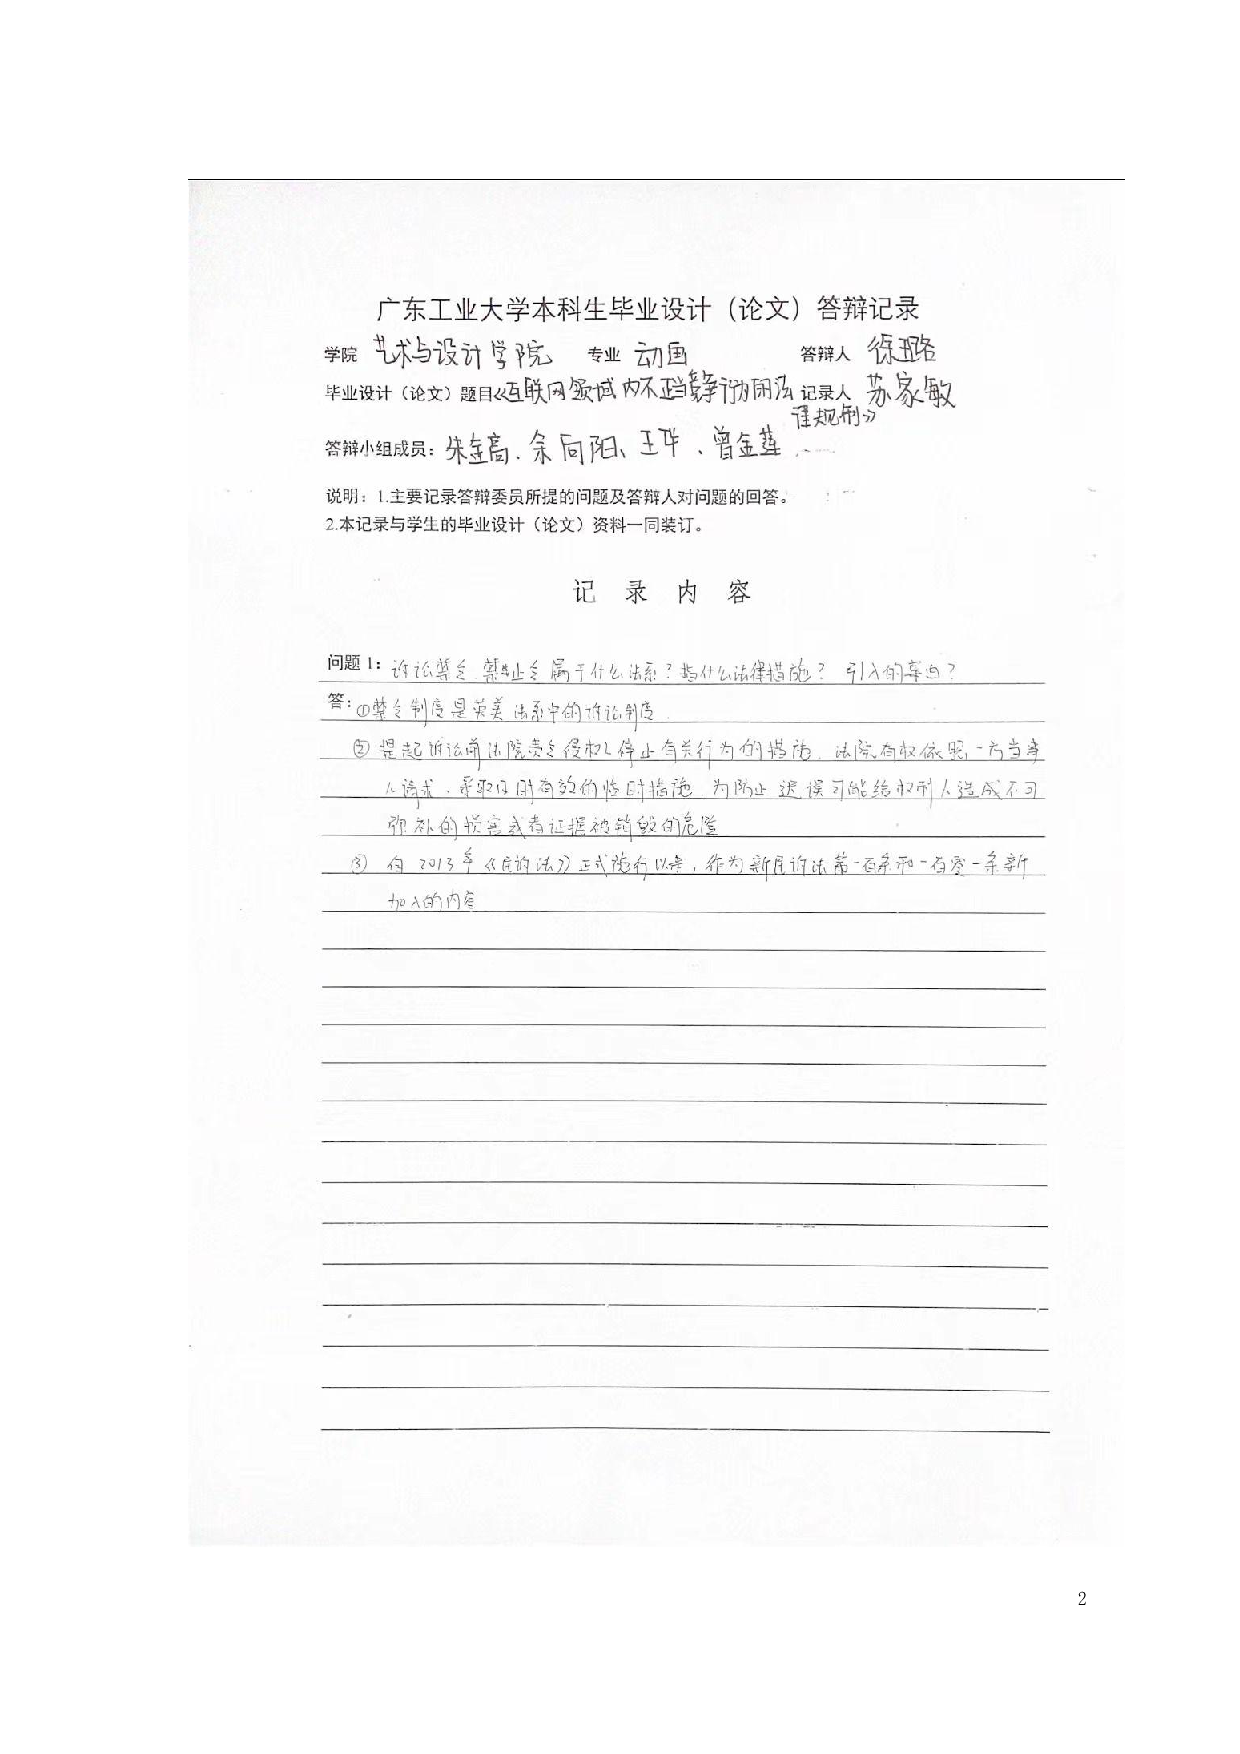 广东工业大学本科生毕业设计（论文）答辩记录
学院 艺术与设计学院 专业 动画 答辩人 徐璐
毕业设计（论文）题目《互联网领域内不正当竞争行为的法 记录人 苏家敏
律规制》
答辩小组成员：朱金高、余向阳、王华、曾金莲
说明：1.主要记录答辩委员所提的问题及答辩人对问题的回答。
2.本记录与学生的毕业设计（论文）资料一同装订。
记 录 内 容
问题1：诉讼禁令、禁止令属于什么法系？指什么法律措施？引入的
答：①禁令制度是英美法系中的诉讼制度
②提起诉讼前法院责令侵权人停止有关行为的措施。法院有权依照一方当事
人请求，采取及时有效的临时措施 为防止迟误可能给权利人造成不可
弥补的损害或者证据被销毁的危险
③ 自2013年《民诉法》正式施行以来，作为新民诉法第一百条和一百零一条新
加入的内容
2